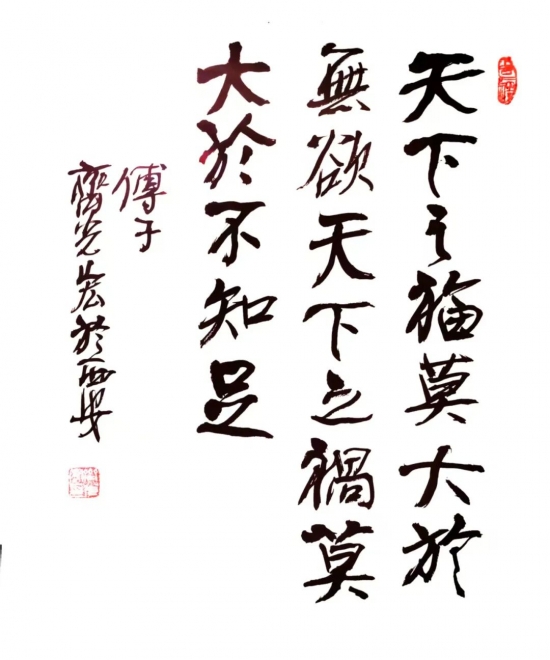 天下之福莫大於
無欲天下之禍莫
大於不知足
傅子
齊光
於西安